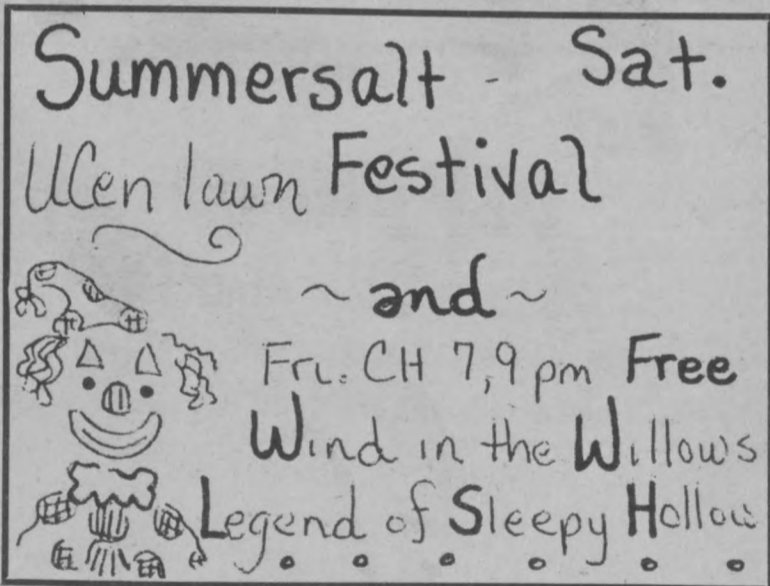 Summersalt - Sat.
UCen lawn Festival
~ and ~
Fri. CH 7,9 pm Free
Wind in the Willows
Legend of Sleepy Hollow